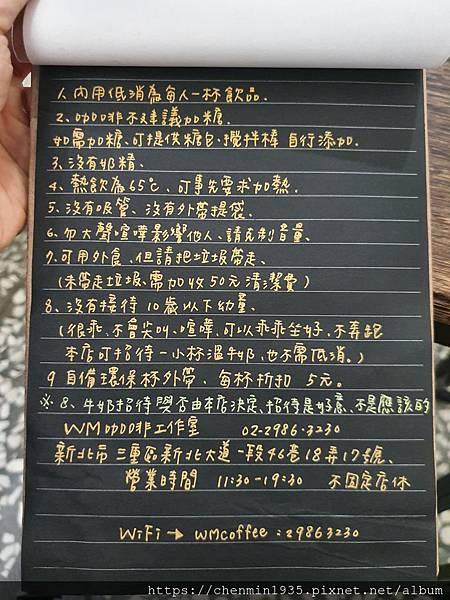 1. 內用低消為每人一杯飲品.
2. 咖啡不建議加糖.
如需加糖、可提供糖包、攪拌棒 自行添加.
3. 沒有奶精.
4. 熱飲為65°C、可事先要求加熱.
5. 沒有吸管、沒有外帶提袋.
6. 勿大聲喧嘩影響他人、請克制音量、
7. 可用外食、但請把垃圾帶走、
(未帶走垃圾、需加收50元清潔費)
8、沒有接待10歲以下幼童、
(很乖、不會尖叫、喧嘩、可以乖乖坐好、不弄髒
本店可招待一小杯溫牛奶、也不需低消。)
9 自備環保杯外帶、每杯折扣 5元。
※8、牛奶招待與否由本店決定、招待是好意、不是應該的
WM咖啡工作室 02-2986-3230
新北市三重區新北大道一段46巷18弄17號、
營業時間 11:30-19:30 不固定店休
WiFi → wmcoffee : 29863230
https://chenmin1935.pixnet.net/album